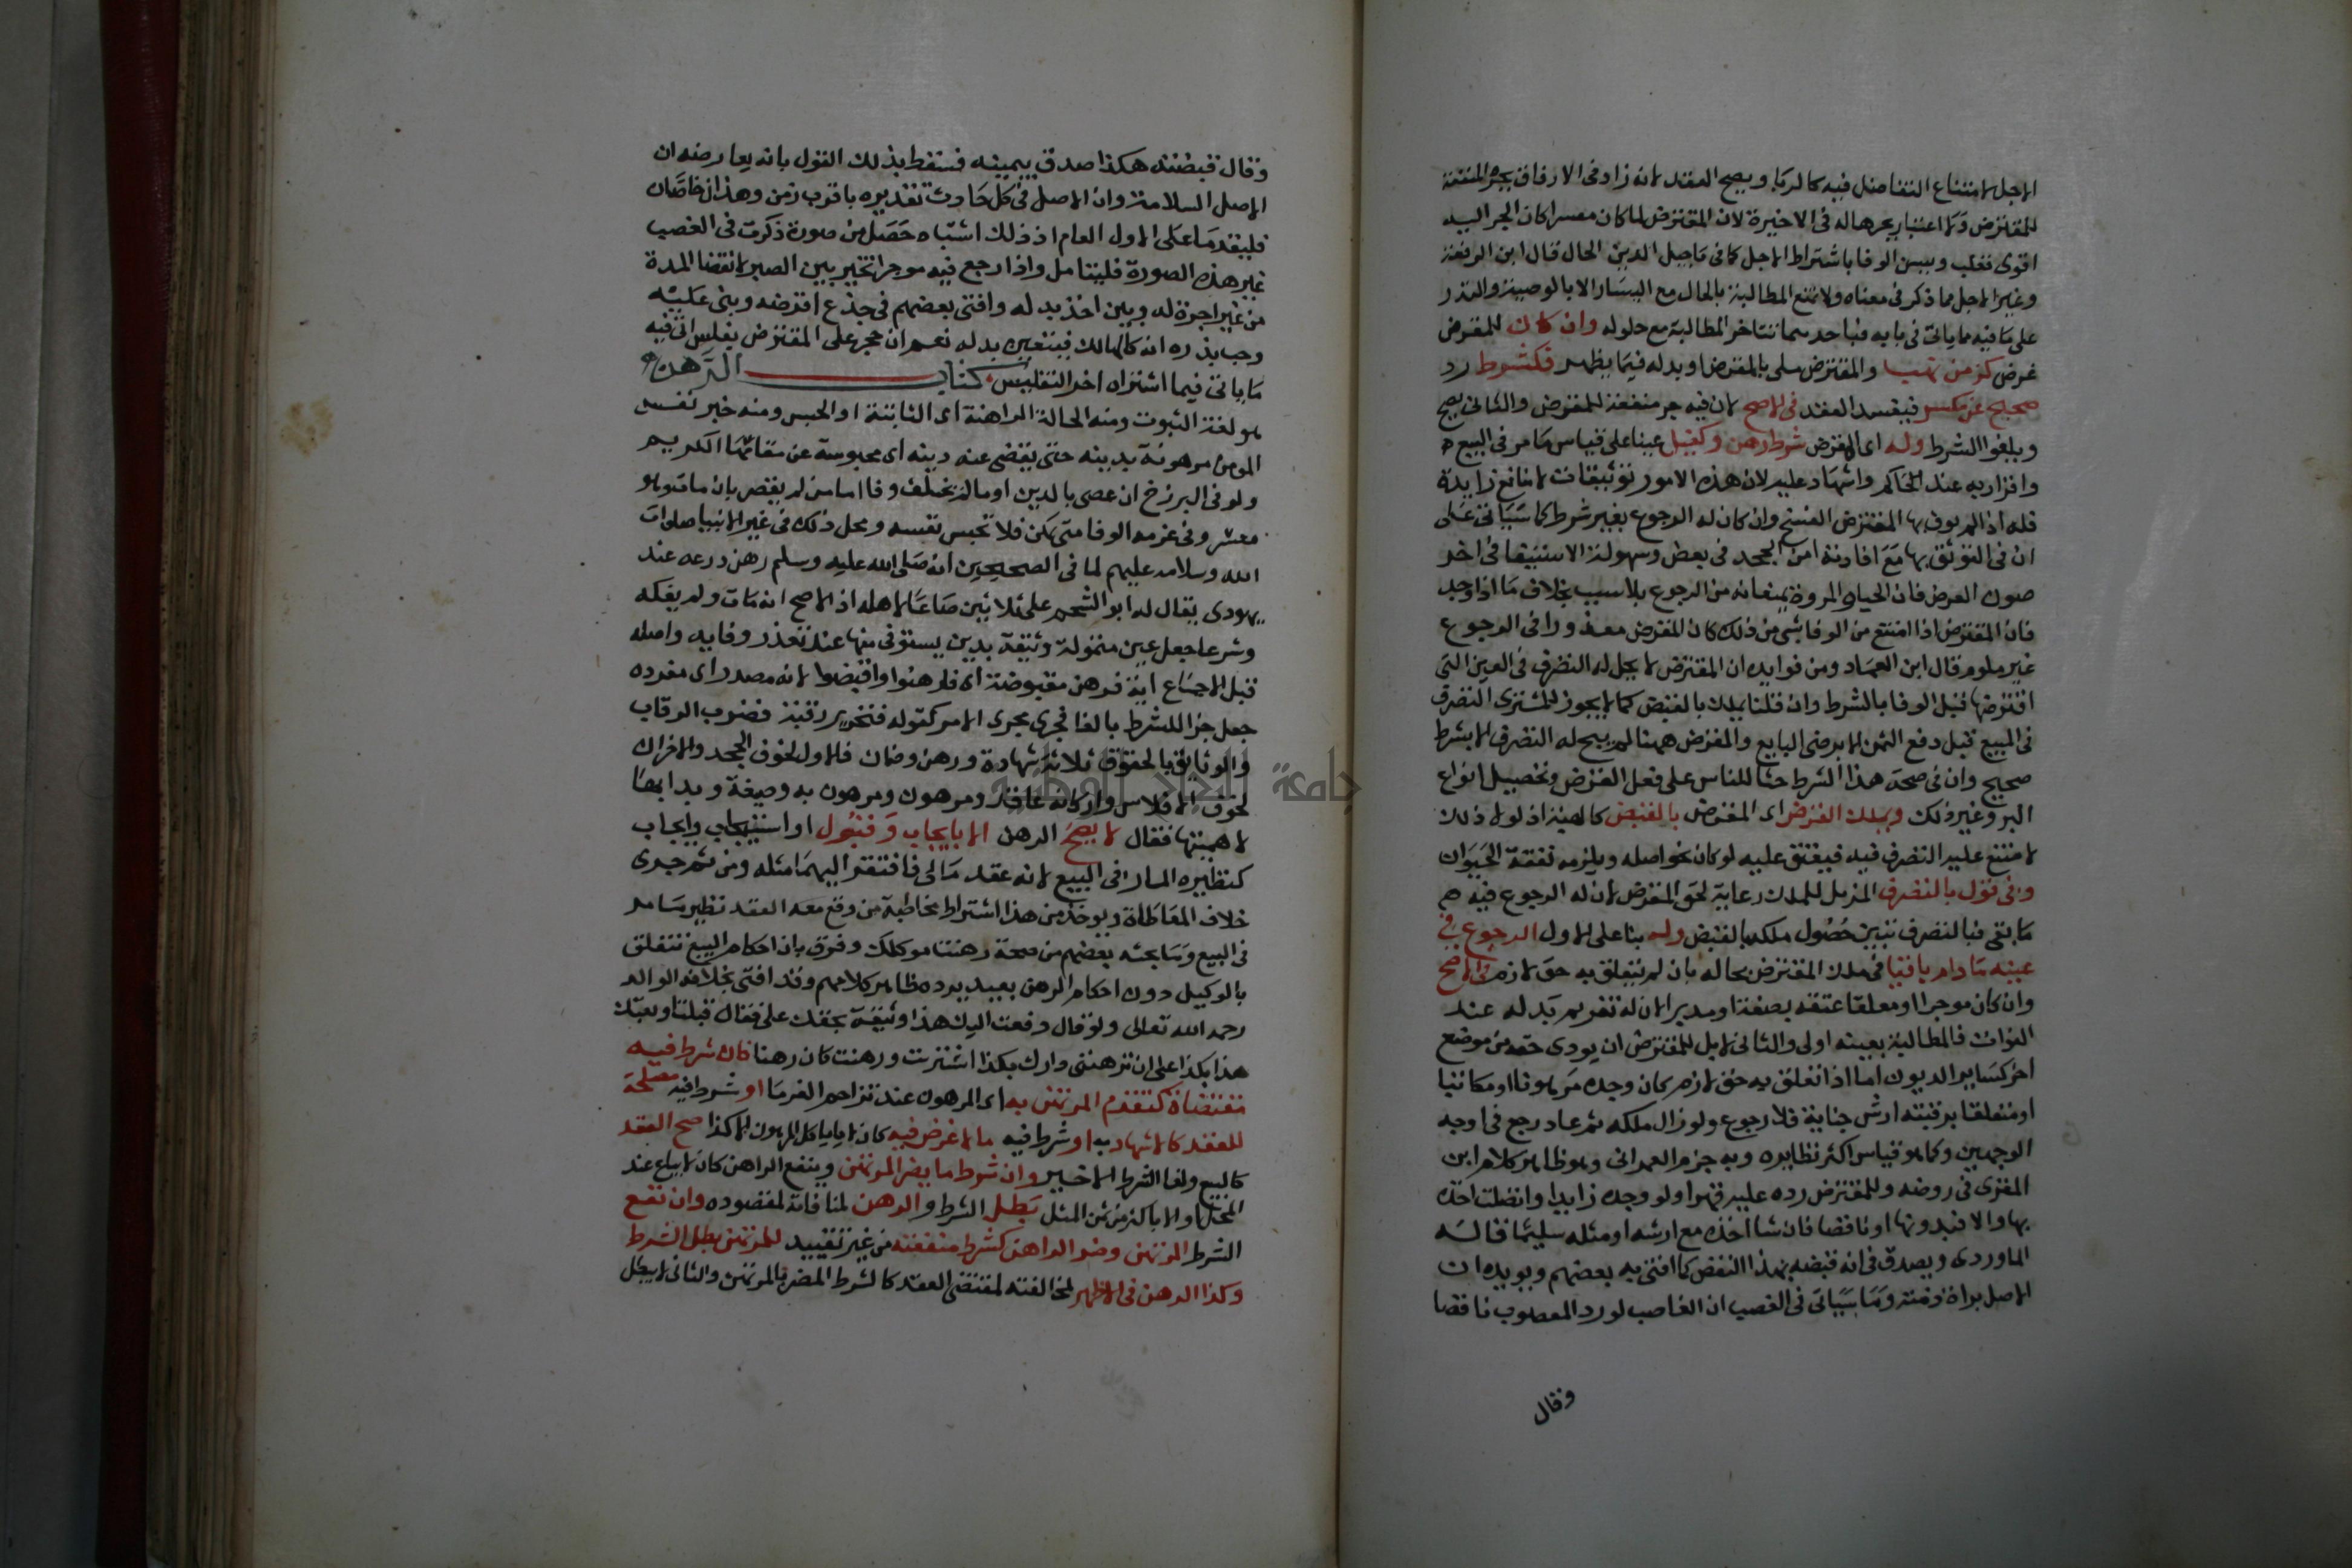 الاجل لامتناع التفاضل فيه كالربا ويصح العقد لانه زاد في الارفاق بجر المنفعة
للمقترض ولا اعتبار بجرها له في الاخيرة لان المقترض لما كان معسرا كان الجر اليه
اقوى فغلب ويسن الوفا باشتراط الاجل كما في تاجيل الدين الحال قال ابن الرفعة
وغير الاجل مما ذكر في معناه ولا تمنع المطالبة بالحال مع اليسار الا بالوصية والنذر
على ما فيه مما ياتي في بابه فباحدهما تتاخر المطالبة مع حلوله وان كان للمقرض
غرض كزمن نهب والمقترض ملى بالمقرض او بدله فيما يظهر فكشرط رد
صحيح عن مكسر فيفسد العقد في الاصح لان فيه جر منفعة للمقرض والثاني يصح
ويلغوا الشرط وله اى المقرض شرط رهن وكفيل عينا على قياس ما مر في البيع
واقرار به عند الحاكم واشهاد عليه لان هذه الامور توثيقات لا منافع زايدة
فله اذا لم يوف بها المقترض الفسخ وان كان له الرجوع بغير شرط كما سياتي على
ان في التوثق بها مع افادته امن الجحد في بعض وسهولة الاستيفا في اخر
صون العرض فان الحيا والمروة يمنعانه من الرجوع بلا سبب بخلاف ما اذا وجد
فان المقترض اذا امتنع من الوفا بشى من ذلك كان المقرض معذورا في الرجوع
غير ملوم قال ابن العماد ومن فوايده ان المقترض لا يحل له التصرف في العين التى
اقترضها قبل الوفا بالشرط وان قلنا يملك بالقبض كما لا يجوز للمشترى التصرف
في المبيع قبل دفع الثمن الا برضى البايع والمقرض ههنا لم يبح له التصرف الا بشرط
صحيح وان في صحة هذا الشرط حثا للناس على فعل القرض وتحصيل انواع
البر وغير ذلك ويملك القرض اى المقرض بالقبض كالهبة اذ لولا ذلك
لامتنع عليه التصرف فيه فيعتق عليه لو كان نحو اصله ويلزمه نفقة الحيوان
وفي قول بالتصرف المزيل للملك رعاية لحق المقرض لان له الرجوع فيه
ما بقى فبالتصرف تبين حصول ملكه بالقبض وله بنا على الاول الرجوع في
عينه ما دام باقيا في ملك المقترض بحاله بان لم يتعلق به حق لازم في الاصح
وان كان موجرا او معلقا عتقه بصفة او مدبرا لان له تغريم بدله عند
الفوات فالمطالبة بعينه اولى والثاني لا بل للمقترض ان يودى حقه من موضع
اخر كساير الديون اما اذا تعلق به حق لازم كان وجده مرهونا او مكاتبا
او متعلقا برقبته ارش جناية فلا رجوع ولو زال ملكه ثم عاد رجع في اوجه
الوجهين وكما هو قياس اكثر نظايره وبه جزم العمرانى وهو ظاهر كلام ابن
المقرى في روضه وللمقترض رده عليه قهرا ولو وجده زايدا وانفصلت اخذه
بها والا فبدونها او ناقصا فان شا اخذه مع ارشه او مثله سليما قاله
الماوردى ويصدق في انه قبضه بهذا النقص كما افتى به بعضهم ويويده ان
الاصل براة ذمته وما سياتي في الغصب ان الغاصب لو رد المغصوب ناقصا
وقال
وقال قبضته هكذا صدق بيمينه فسقط بذلك القول بانه يعارضه ان
الاصل السلامة وان الاصل في كل حادث تقديره باقرب زمن وهذان خاصان
فليقدما على الاول العام اذ ذلك اشتباه حصل من صورة ذكرت في الغصب
غير هذه الصورة فليتامل واذا رجع فيه موجرا تخير بين الصبر لانقضا المدة
من غير اجرة له وبين اخذ بدله وافتى بعضهم في جذع اقرضه وبنى عليه
وحب بذره انه كالهالك فيتعين بدله نعم ان حجر على المقترض بفلس اتى فيه
ما ياتي فيما اشتراه اخر التفليس كتاب الرهن
هو لغة الثبوت ومنه الحالة الراهنة اى الثابتة او الحبس ومنه خبر نفس
المومن مرهونة بدينه حتى يقضى عنه دينه اى محبوسة عن مقامها الكريم
ولو في البرزخ ان عصى بالدين او مالم يخلف وفا اما من لم يقصر بان مات وهو
معسر وفي عزمه الوفا متى تمكن فلا تحبس نفسه ومحل ذلك في غير الانبيا صلوات
الله وسلامه عليهم لما في الصحيحين انه صلى الله عليه وسلم رهن درعه عند
يهودى يقال له ابو الشحم على ثلاثين صاعا لاهله اذ الاصح انه مات ولم يفكه
وشرعا جعل عين متمولة وثيقة بدين يستوفى منها عند تعذر وفايه واصله
قبل الاجماع اية فرهن مقبوضة اى فارهنوا واقبضوا لانه مصدر اى مفرده
جعل جزا للشرط بالفا فجرى مجرى الامر كقوله فتحرير رقبة فضرب الرقاب
والوثايق بالحقوق ثلاثة شهادة ورهن وضمان فالاول لخوف الجحد والاخران
لخوف الافلاس واركانه عاقد ومرهون ومرهون به وصيغة وبدا بها
لاهميتها فقال لا يصح الرهن الا بايجاب وقبول او استيجاب وايجاب
كنظيره المار في البيع لانه عقد مالى فافتقر اليهما مثله ومن ثم جرى
خلاف المعاطاة ويوخذ من هذا اشتراط مخاطبة من وقع معه العقد نظير ما مر
في البيع وما بحثه بعضهم من صحة رهنت موكلك وفرق بان احكام البيع تتعلق
بالوكيل دون احكام الرهن بعيد يرده ظاهر كلامهم وقد افتى بخلافه الوالد
رحمه الله تعالى ولو قال دفعت اليك هذا وثيقة بحقك على فقال قبلت او بعتك
هذا بكذا على ان ترهننى دارك بكذا فقال اشتريت ورهنت كان رهنا فان شرط فيه
مقتضاه كتقدم المرتهن به اى المرهون عند تزاحم الغرما او شرط فيه مصلحة
للعقد كالاشهاد به او شرط فيه مالا غرض فيه كان لا ياكل المرهون الا كذا صح العقد
كالبيع ولغا الشرط الاخير وان شرط ما يضر المرتهن وينفع الراهن كان لا يباع عند
المحل او الا باكثر من ثمن المثل بطل الشرط والرهن لمنافاته لمقصوده وان نفع
الشرط المرتهن وضر الراهن كشرط منفعته من غير تقييد للمرتهن بطل الشرط
وكذا الرهن في الاظهر لمخالفته لمقتضى العقد كالشرط المضر بالمرتهن والثاني لا يبطل
جامعة الملك